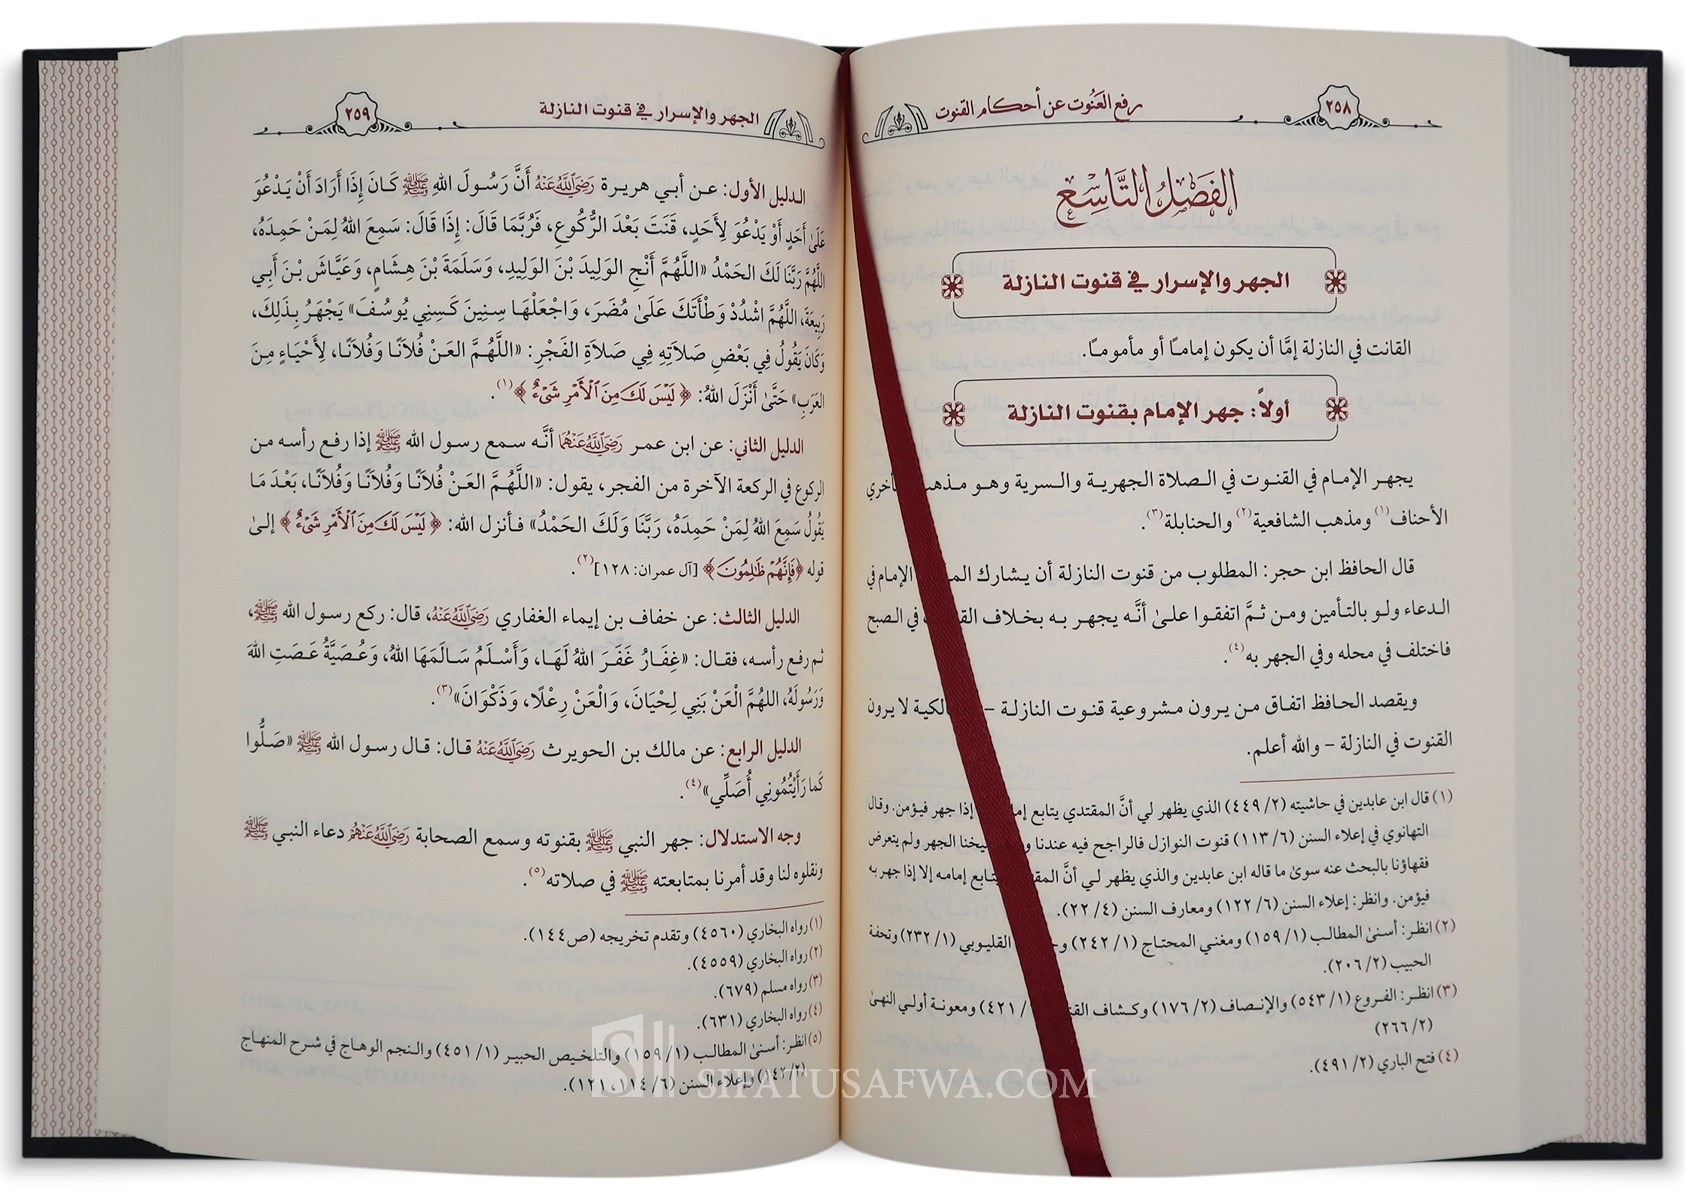 ٢٥٨
رفع العَنُوت عن أحكام القنوت
الفَصْلُ التَّاسِعُ
الجهر والإسرار في قنوت النازلة
القانت في النازلة إمَّا أن يكون إمامـًا أو مأمومـًا.
أولاً: جهر الإمام بقنوت النازلة
يجهـر الإمـام في القنـوت في الـصلاة الجهريـة والـسرية وهـو مـذهب
الأحناف(١) ومذهب الشافعية(٢) والحنابلة(٣).
قال الحافظ ابن حجر: المطلوب من قنوت النازلة أن يشارك الإمام في
الدعاء ولـو بالتـأمين ومـن ثـمَّ اتفقـوا علـىٰ أنَّـه يجهـر بـه بخـلاف في الصبح
فاختلف في محله وفي الجهر به(٤).
ويقصد الحـافظ اتفـاق مـن يـرون مـشروعية قنـوت النازلـة – لا يـرون
القنوت في النازلة – والله أعلم.
(١) قال ابن عابدين في حاشيته (٢/ ٤٤٩) الذي يظهر لي أنَّ المقتدي يتابع إذا جهر فيؤمن. وقال
التهانوي في إعلاء السنن (٦/ ١١٣) قنوت النوازل فالراجح فيه عندنا شيخنا الجهر ولم يتعرض
فقهاؤنا بالبحث عنه سوىٰ ما قاله ابن عابدين والذي يظهر لـي أنَّ يتابع إمامه إلا إذا جهر به
فيؤمن. وانظر: إعلاء السنن (٦/ ١٢٢) ومعارف السنن (٤/ ٢٢).
(٢) انظر: أسنىٰ المطالب (١/ ١٥٩) ومغني المحتاج (١/ ٢٤٢) القليوبي (١/ ٢٣٢) وتحفة
الحبيب (٢/ ٢٠٦).
(٣) انظـر: الفـروع (١/ ٥٤٣) والإنـصاف (٢/ ١٧٦) وكـشاف ٤٢١) ومعونـة أولـي النهـىٰ
(٢/ ٢٦٦)
(٤) فتح الباري (٢/ ٤٩١).
الجهر والإسرار في قنوت النازلة
٢٥٩
الدليل الأول: عـن أبـي هريـرة رَضِيَ اللَّهُ عَنْهُ أَنَّ رَسُـولَ اللهِ ﷺ كَـانَ إِذَا أَرَادَ أَنْ يَـدْعُوَ
عَلَىٰ أَحَدٍ أَوْ يَدْعُوَ لِأَحَدٍ، قَنَتَ بَعْدَ الرُّكُوعِ، فَرُبَّمَا قَالَ: إِذَا قَالَ: سَمِعَ اللهُ لِمَنْ حَمِدَهُ،
اللَّهُمَّ رَبَّنَا لَكَ الحَمْدُ «اللَّهُمَّ أَنْجِ الوَلِيدَ بْنَ الوَلِيدِ، وَسَلَمَةَ بْنَ هِشَامٍ، وَعَيَّاشَ بْنَ أَبِي
رَبِيعَةَ، اللَّهُمَّ اشْدُدْ وَطْأَتَكَ عَلَىٰ مُضَرَ، وَاجْعَلْهَا سِنِينَ كَسِنِي يُوسُفَ» يَجْهَرُ بِذَلِكَ،
وَكَانَ يَقُولُ فِي بَعْضِ صَلاَتِهِ فِي صَلاَةِ الفَجْرِ: «اللَّهُمَّ العَنْ فُلاَنًا وَفُلاَنًا، لِأَحْيَاءٍ مِنَ
العَرَبِ» حَتَّىٰ أَنْزَلَ اللهُ: ﴿ لَيْسَ لَكَ مِنَ ٱلْأَمْرِ شَيْءٌ ﴾(١).
الدليل الثاني: عن ابن عمـر رَضِيَ اللَّهُ عَنْهُمَا أنَّـه سمع رسول الله ﷺ إذا رفع رأسه من
الركوع في الركعة الآخرة من الفجر، يقول: «اللَّهُمَّ العَنْ فُلاَنًا وَفُلاَنًا وَفُلاَنًا، بَعْدَ مَا
يَقُولُ سَمِعَ اللهُ لِمَنْ حَمِدَهُ، رَبَّنَا وَلَكَ الحَمْدُ» فـأنزل الله: ﴿ لَيْسَ لَكَ مِنَ ٱلْأَمْرِ شَيْءٌ ﴾ إلىٰ
قوله ﴿فَإِنَّهُمْ ظَٰلِمُونَ﴾ [آل عمران: ١٢٨](٢).
الدليل الثالث: عن خفاف بن إيماء الغفاري رَضِيَ اللَّهُ عَنْهُ، قال: ركع رسول الله ﷺ،
ثم رفع رأسـه، فقـال: «غِفَـارُ غَفَـرَ اللهُ لَهَـا، وَأَسْـلَمُ سَـالَمَهَا اللهُ، وَعُـصَيَّةُ عَـصَتِ اللهَ
وَرَسُولَهُ، اللهُمَّ الْعَنْ بَنِي لِحْيَانَ، وَالْعَنْ رِعْلًا، وَذَكْوَانَ»(٣).
الدليل الرابع: عن مالك بن الحويرث رَضِيَ اللَّهُ عَنْهُ قال: قال رسول الله ﷺ «صَلُّوا
كَمَا رَأَيْتُمُونِي أُصَلِّي»(٤).
وجه الاستدلال: جهر النبي ﷺ بقنوته وسمع الصحابة رَضِيَ اللَّهُ عَنْهُمْ دعاء النبي ﷺ
ونقلوه لنا وقد أمرنا بمتابعته ﷺ في صلاته(٥).
(١) رواه البخاري (٤٥٦٠) وتقدم تخريجه (ص١٤٤).
(٢) رواه البخاري (٤٥٥٩).
(٣) رواه مسلم (٦٧٩).
(٤) رواه البخاري (٦٣١).
(٥) انظر: أسنىٰ المطالب (١/ ١٥٩) والتلخيص الحبير (١/ ٤٥١) والنجم الوهاج في شرح المنهاج
(٢/ ١٤٢) وإعلاء السنن (٦/ ١١٤، ١٢١).
SIFATUSAFWA.COM